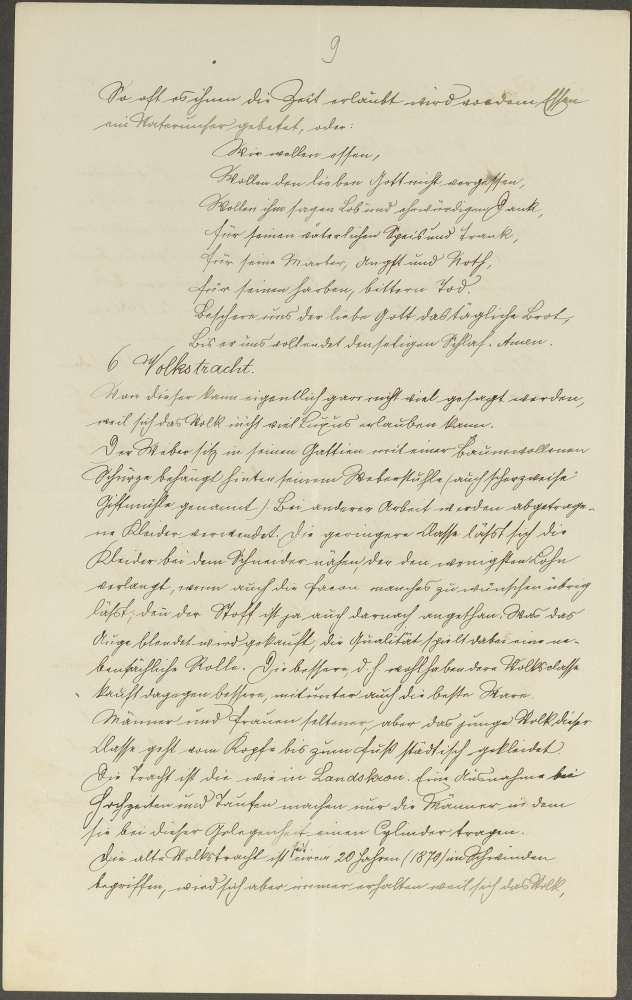 9
So oft es ihnen die Zeit erlaubt wird vor dem Essen
ein Vaterunser gebetet, oder:
Wir wollen essen,
Wollen den lieben Gott nicht vergessen,
Wollen ihm sagen Lob und ehrwürdigen Dank,
Für seinen väterlichen Speis und Trank,
Für seine Marter, Angst und Noth,
Für seinen harben, bittern Tod.
Beschere uns der liebe Gott das tägliche Brot,
Bis er uns vollendet den seligen Schlaf. Amen.
6 Volkstracht.
Von dieser kann eigentlich garr nicht viel gesagt werden,
weil sich das Volk nicht viel Luxus erlauben kann.
Der Weber sitz in seinen Gattien mit einer baumwollenen
Schürze behängt hinter seinem Weberstuhle (auch scherzweise
Giftmühle genannt.) Bei anderer Arbeit werden abgetrage-
ne Kleider verwendet. Die geringere Classe läßt sich die
Kleider bei dem Schneider nähen, der den wenigsten Lohn
verlangt, wenn auch die Facon manches zu wünschen übrig
läßt; den der Stoff ist ja auch darnach angethan. Was das
Auge blendet wird gekauft, die Qualität spielt dabei eine ne-
bensächliche Rolle. Die bessere, d. h. wohlhabendere Volksclasse
kauft dagegen bessere, mitunter auch die beste Ware.
Männer und Frauen seltener, aber das junge Volk dieser
Classe geht vom Kopfe bis zum Fuß städtisch gekleidet
Die Tracht ist die wie in Landskron. Eine Ausnahme bei
Hochzeiten und Taufen machen nur die Männer in dem
sie bei dieser Gelegenheit einen Cylinder tragen.
Die alte Volkstracht ist seit circa 20 Jahren (1870) im Schwinden
begriffen, wird sich aber immer erhalten weil sich das Volk,